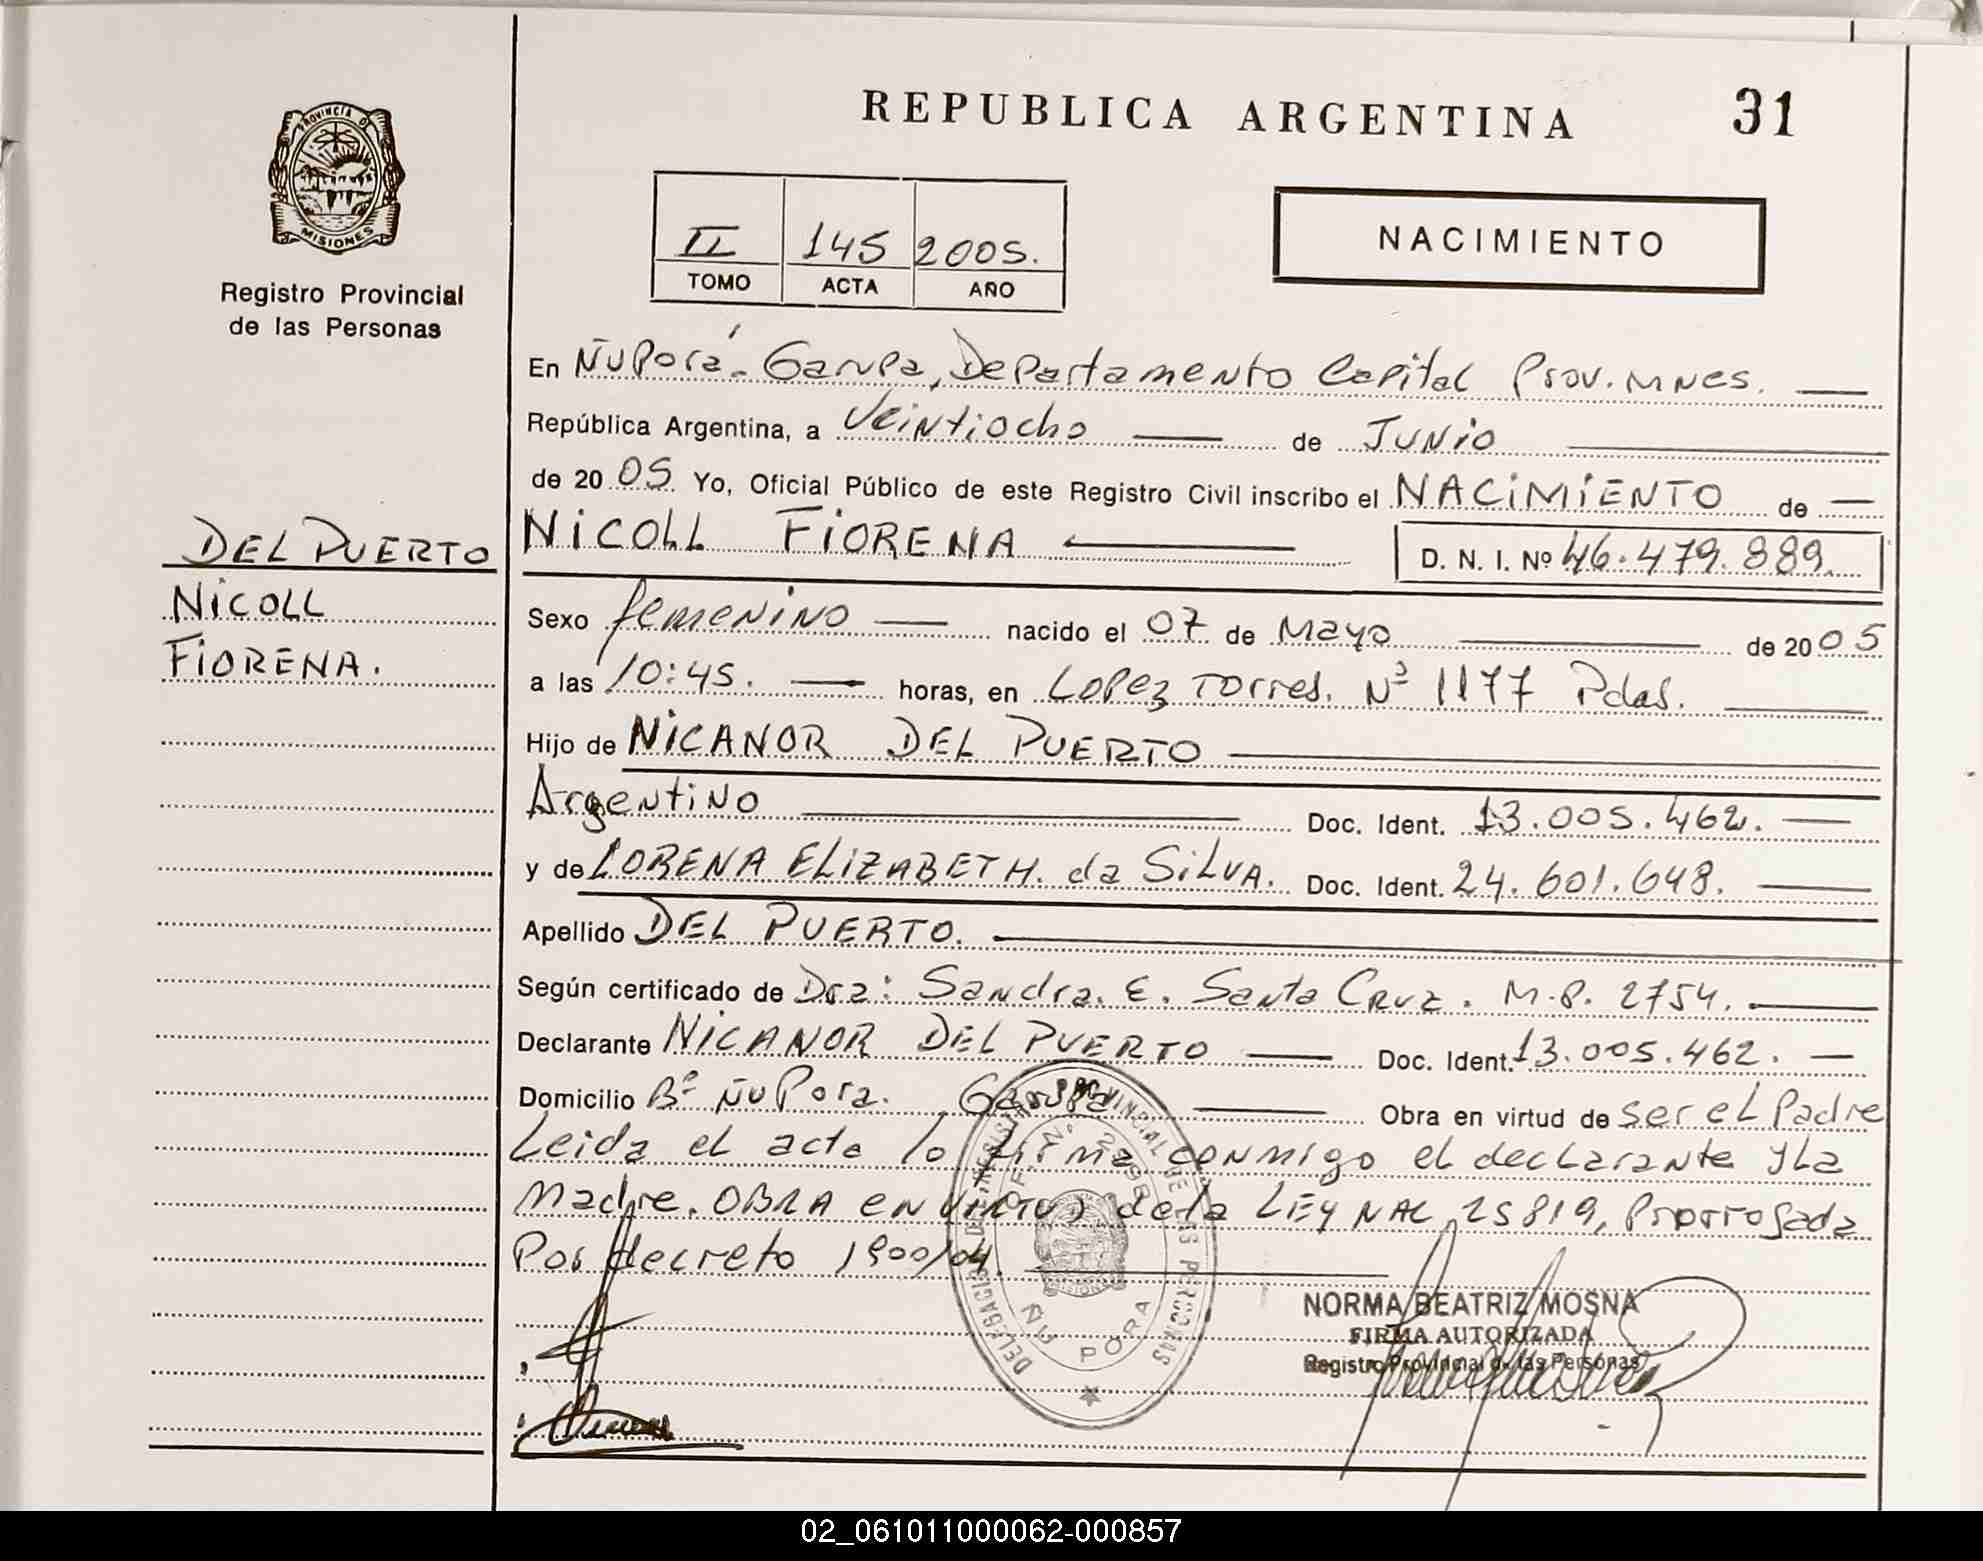 REPUBLICA ARGENTINA
31
PROVINCIA DE
MISIONES
Registro Provincial
de las Personas
II 145 2005.
TOMO ACTA AÑO
NACIMIENTO
En ÑuPorá. Garupa, Departamento Capital Prov. MNes.
República Argentina, a Veintiocho de Junio
de 2005 Yo, Oficial Público de este Registro Civil inscribo el NACIMIENTO de
NICOLL FIORENA
D. N. I. Nº 46.479.889.
DEL PUERTO
NICOLL
FIORENA.
Sexo femenino nacido el 07 de Mayo de 2005
a las 10:45. horas, en Lopez Torres. Nº 1177 Pdas.
Hijo de NICANOR DEL PUERTO
Argentino Doc. Ident. 13.005.462.
y de LORENA ELIZABETH. da SILVA. Doc. Ident. 24.601.648.
Apellido DEL PUERTO.
Según certificado de Dra: Sandra. E. Santa Cruz. M.P. 2754.
Declarante NICANOR DEL PUERTO Doc. Ident. 13.005.462.
Domicilio Bº ÑuPora. Garupa Obra en virtud de ser el Padre
Leida el acta lo firma conmigo el declarante y La
Madre. OBRA EN VIRTUD de la LEY NAC 25819, Prorrogada
Por decreto 1900/04.
ÑU PORA
NORMA BEATRIZ MOSNA
FIRMA AUTORIZADA
Registro Provincial de las Personas
02_061011000062-000857